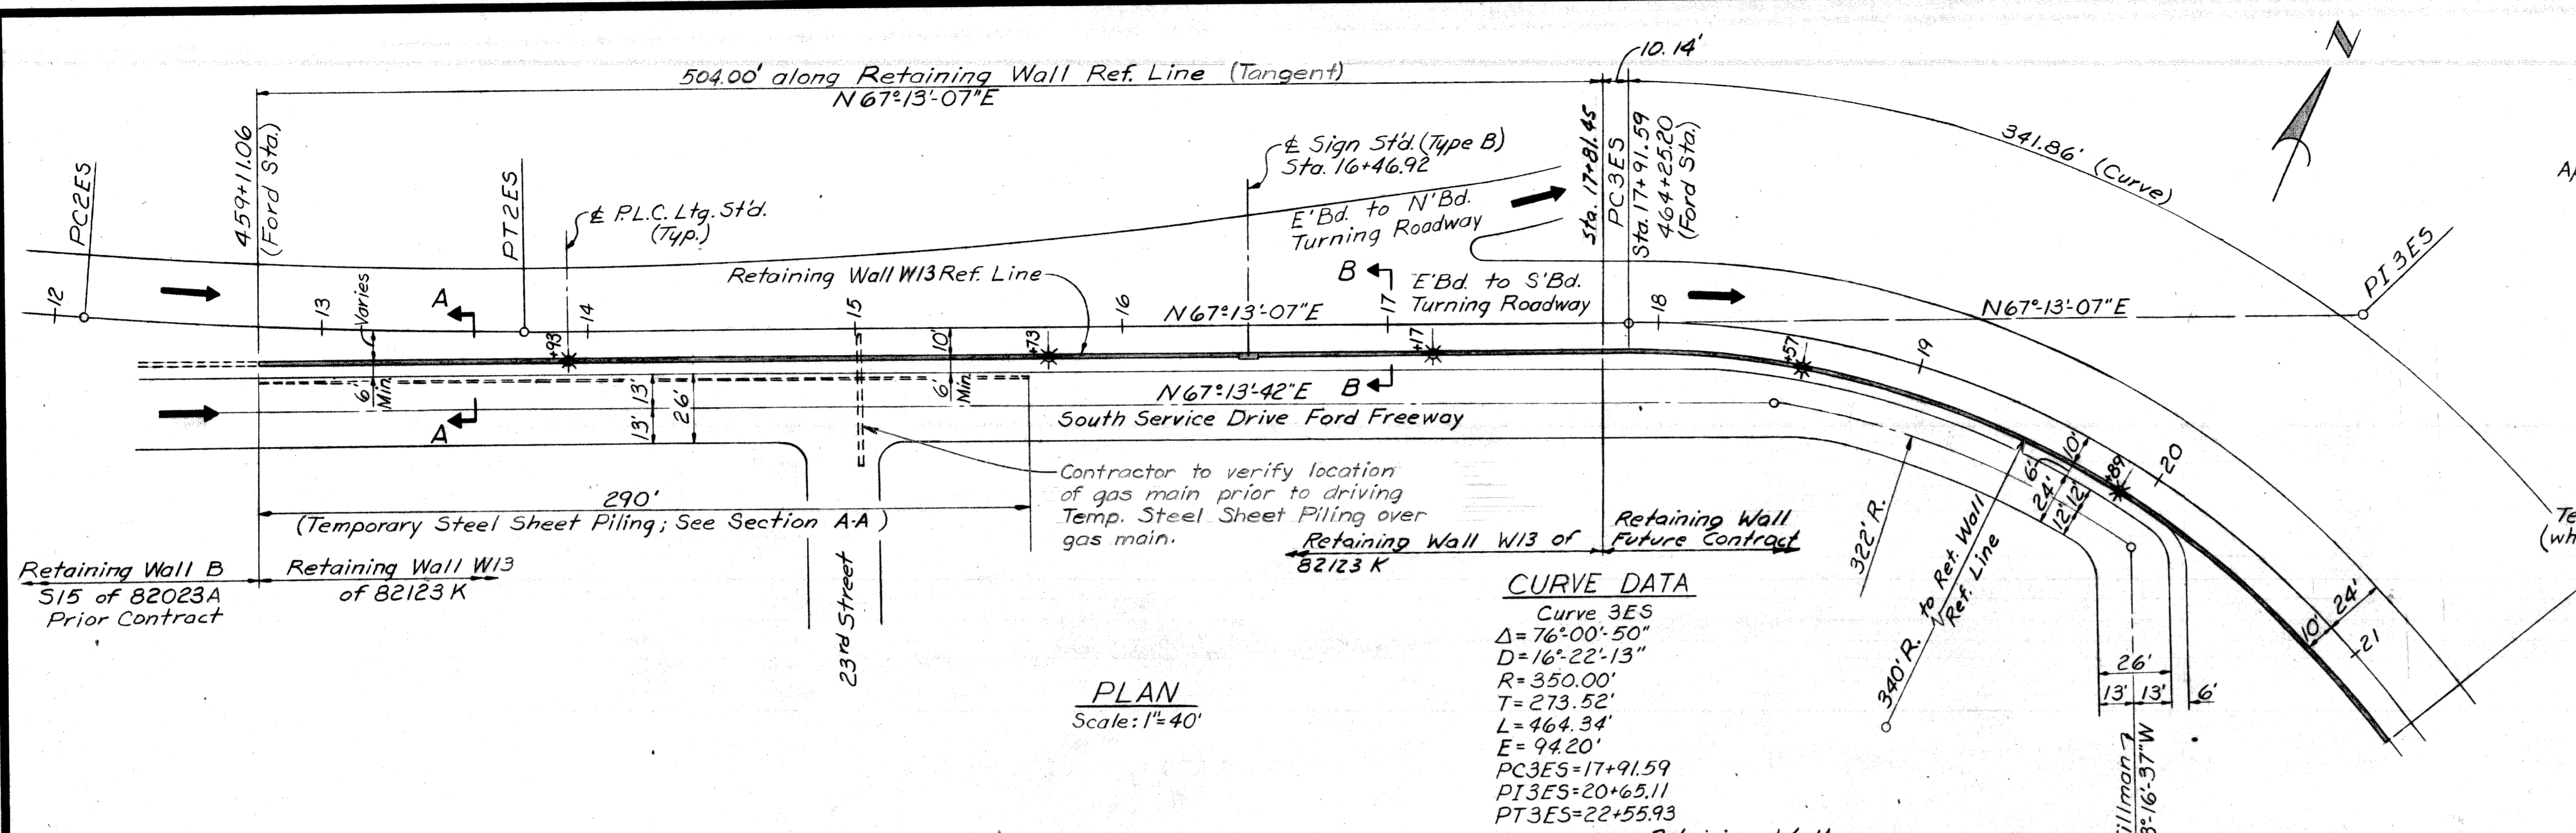 504.00' along Retaining Wall Ref. Line (Tangent)
N 67°-13'-07" E
10.14'
N
341.86' (Curve)
PC2ES
459+11.06
(Ford Sta.)
PT2ES
₵ P.L.C. Ltg. St'd.
(Typ.)
₵ Sign St'd. (Type B)
Sta. 16+46.92
E'Bd. to N'Bd.
Turning Roadway
Sta. 17+81.45
PC3ES
Sta. 17+91.59
464+25.20
(Ford Sta.)
PI 3ES
Retaining Wall W13 Ref. Line
B
E'Bd. to S'Bd.
Turning Roadway
12
13
Varies
A
14
15
16
N67°-13'-07"E
17
18
N67°-13'-07"E
+93
10'
+73
+17
+57
19
6"
Min.
13'
13'
26'
6'
Min.
N67°-13'-42"E
B
South Service Drive Ford Freeway
A
Contractor to verify location
of gas main prior to driving
Temp. Steel Sheet Piling over
gas main.
290'
(Temporary Steel Sheet Piling; See Section A-A)
Retaining Wall B
S15 of 82023A
Prior Contract
Retaining Wall W13
of 82123 K
23rd Street
Retaining Wall W13 of
82123 K
Retaining Wall
Future Contract
322' R.
340' R. to Ret. Wall
Ref. Line
10'
6'
24'
12'
12'
+89
20
24'
10'
21
26'
13'
13'
6'
PLAN
Scale: 1"=40'
CURVE DATA
Curve 3ES
Δ= 76°-00'-50"
D= 16°-22'-13"
R= 350.00'
T= 273.52'
L= 464.34'
E= 94.20'
PC3ES=17+91.59
PI3ES=20+65.11
PT3ES=22+55.93